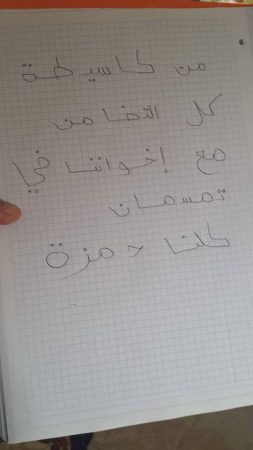 من كاسيطة
كل التضامن
مع إخواننا في
تمسمان
كلنا حمزة